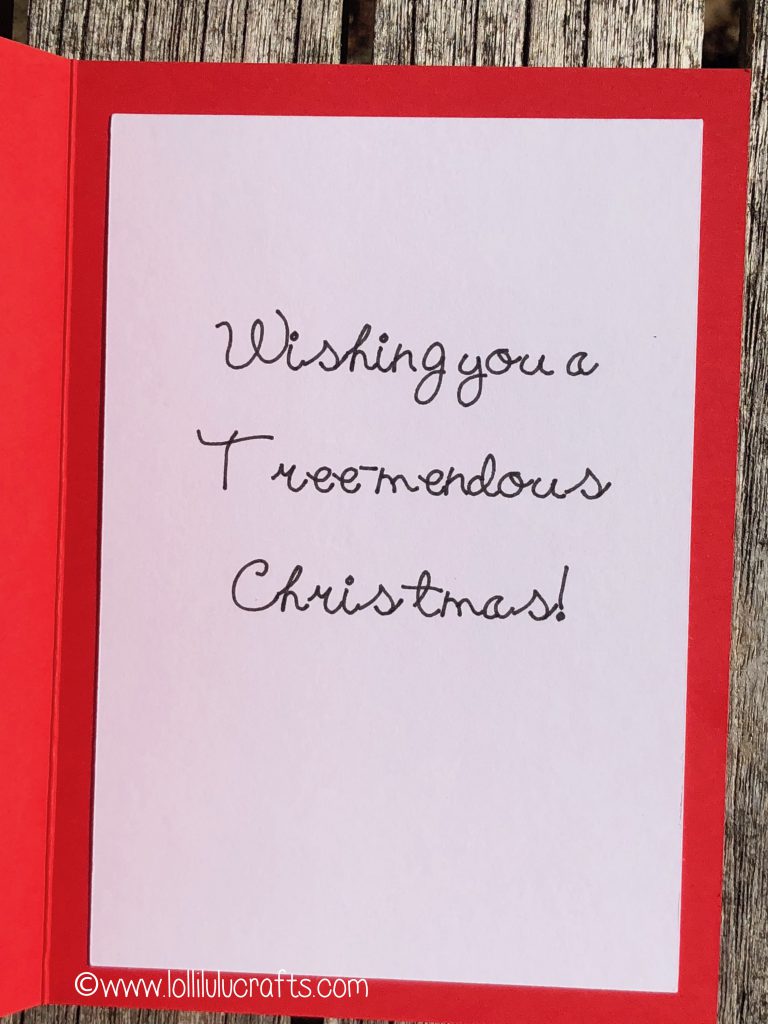 Wishing you a
Tree-mendous
Christmas!
©www.lollilulucrafts.com